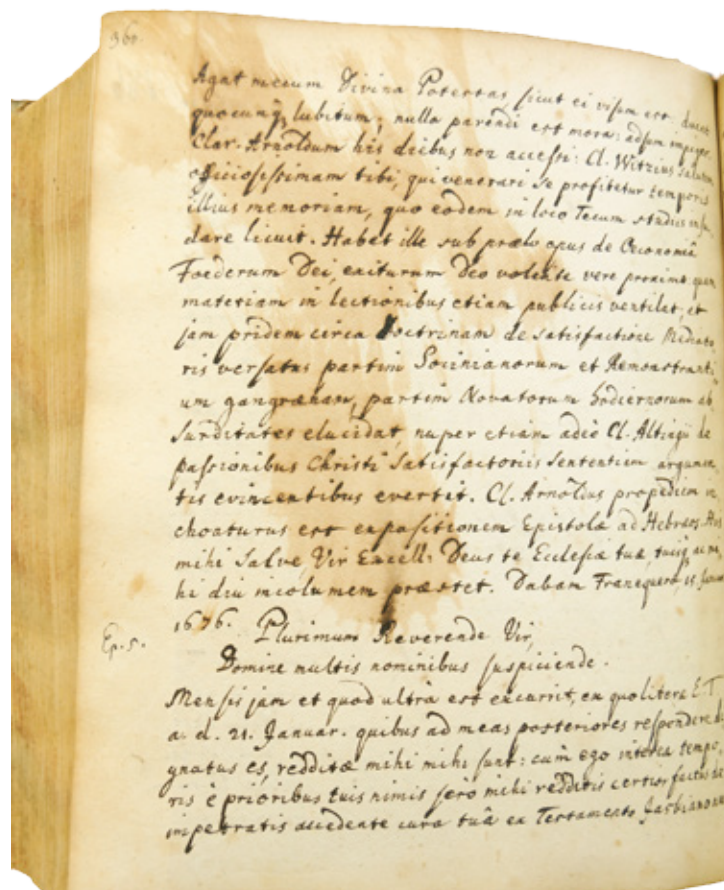 360.
Agat mecum Divina Potestas, sicut ei visum est: ducat
quocunq; lubitum; nulla parendi est mora: adsum impiger.
Clar. Arnoldum his diebus non accessi: Cl. Witzius salutem
officiosissimam tibi, qui venerari se profitetur temporis
illius memoriam, quo eodem in loco Tecum studiis insu,
dare licuit. Habet ille sub prælo opus de Oeconomiâ
Foederum Dei, exiturum Deo volente vere proximo, quam
materiam in lectionibus etiam publicis ventilat, et
jam pridem circa doctrinam de satisfactione Mediato
ris versatus partim Socinianorum et Remonstranti
um gangrænam, partim Novatorum hodiernorum ab
surditates elucidat, nuper etiam adeò Cl. Altingii de
passionibus Christi satisfactoriis sententiam argumen
tis evincentibus evertit. Cl. Arnoldus propediem in
choaturus est expositionem Epistolæ ad Hebræos.
mihi Salve, Vir Excell. Deus te Ecclesiæ tuæ, tuisq; ac mi,
hi diu incolumem præstet. Dabam Franequeræ 15
1676. Plurimum Reverende Vir,
Ep. 5.
Domine multis nominibus suspiciende.
Mensis jam et quod ultrà est excurrit, ex quo literæ E. T.
a. d. 21. Januar. quibus ad meas posteriores respondere di
gnatus es, redditæ mihi mihi sunt: cum ego interea tempo,
ris è prioribus tuis nimis serò mihi redditis certior factus de
impetratis accedente curâ tuâ ex Testamento